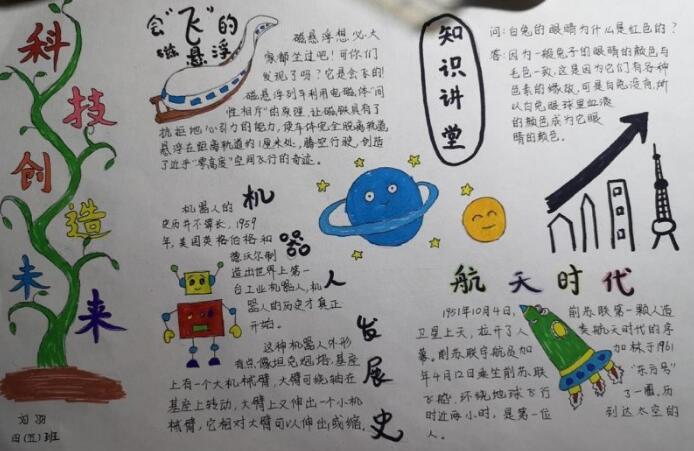 科
技
创
造
未
来
会“飞”的
磁悬浮
磁悬浮想必大
家都坐过吧！可你们
发现了吗？它是会飞的！
磁悬浮列车利用电磁体“同
性相斥”的原理，让磁铁具有了
抗拒地心引力的能力，使车体完全脱离轨道，
悬浮在距离轨道约1厘米处，腾空行驶，创造
了近乎“零高度”空间飞行的奇迹。
知识讲堂
问：白兔的眼睛为什么是红色的？
答：因为一般兔子的眼睛的颜色与
毛色一致，这是因为它们有各种
色素的缘故，可是白兔没有，所
以白兔眼球里血液
的颜色成为它眼
睛的颜色。
机器人发展史
机器人的
史历并不算长，1959
年，美国英格伯格和
德沃尔制
造出世界上第一
台工业机器人，机
器人的历史才真正
开始。
这种机器人外形
有点像坦克炮塔，基座
上有一个大机械臂，大臂可绕轴在
基座上转动，大臂上又伸出一个小机
械臂，它相对大臂可以伸出或缩。
航天时代
1951年10月4日，前苏联第一颗人造
卫星上天，拉开了人类航天时代的序
幕，前苏联宇航员加加林于1961
年4月12日乘坐前苏联“东方号”
飞船，环绕地球飞行了一圈，历
时近两小时，是第一位到达太空的
人。
四(五)班